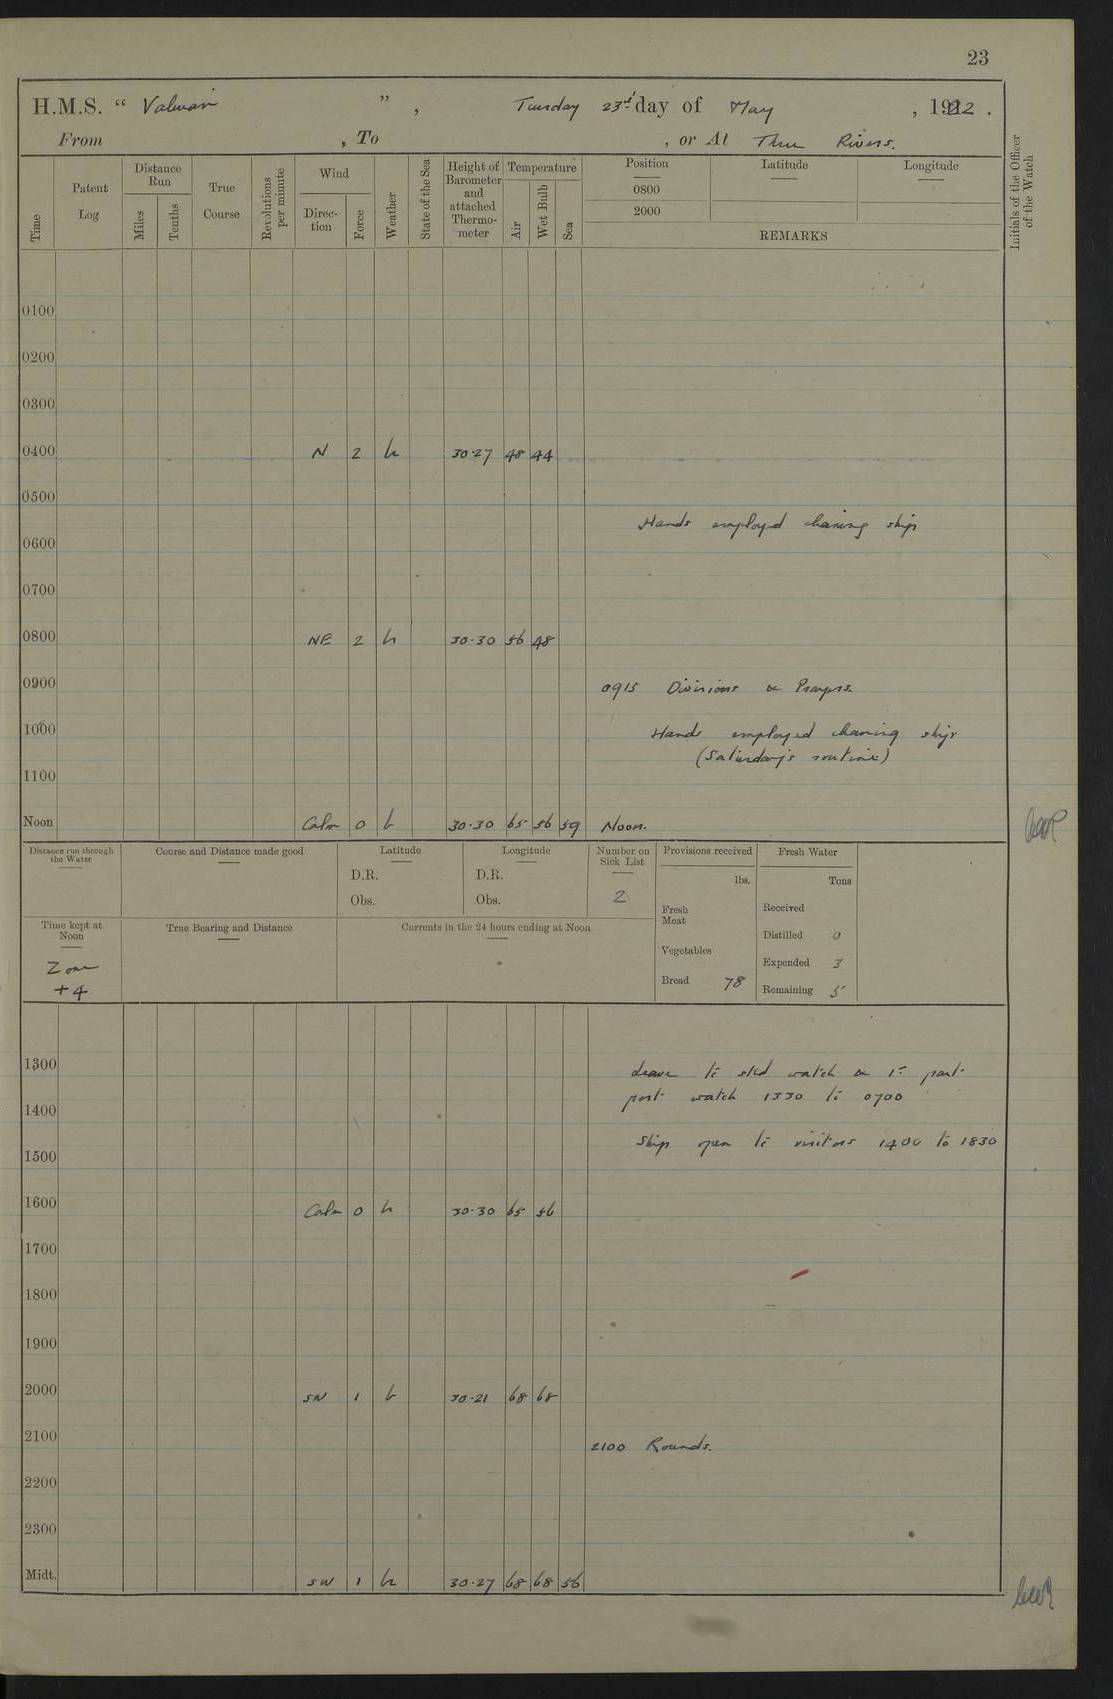 23
H.M.S. “ Valerian ” , Tuesday 23rd day of May , 1922 .
From , To , or At Three Rivers.
Time
Patent Log
Distance Run
Miles
Tenths
True Course
Revolutions per minute
Wind
Direc-tion
Force
Weather
State of the Sea
Height of Barometer and attached Thermo-meter
Temperature
Air
Wet Bulb
Sea
Position
0800
2000
Latitude
Longitude
REMARKS
Initials of the Officer of the Watch
0100
0200
0300
0400 N 2 b 30.27 48 44
0500
Hands employed cleaning ship
0600
0700
0800 NE 2 b 30.30 56 48
0900 0915 Divisions & Prayers.
1000 Hands employed cleaning ship
(Saturday's routine)
1100
Noon Calm 0 b 30.30 65 56 59 Noon.
Distance run through the Water
Course and Distance made good
Latitude
D.R.
Obs.
Longitude
D.R.
Obs.
Number on Sick List
2
Provisions received
lbs.
Fresh Meat
Vegetables
Bread 78
Fresh Water
Tons
Received
Distilled 0
Expended 3
Remaining 5
Time kept at Noon
Zone
+4
True Bearing and Distance
Currents in the 24 hours ending at Noon
1300 Leave to stbd watch & 1st part
port watch 1330 to 0700
1400
Ship open to visitors 1400 to 1830
1500
1600 Calm 0 b 30.30 65 56
1700
1800
1900
2000 SW 1 b 30.21 68 68
2100 2100 Rounds.
2200
2300
Midt. SW 1 b 30.27 68 68 56